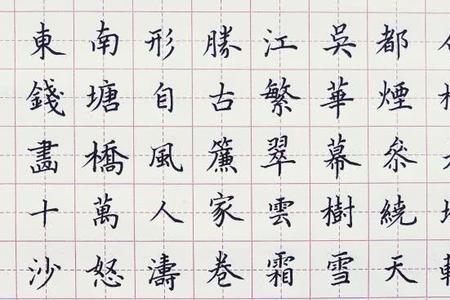 東南形勝江吳都
錢塘自古繁華煙
畫橋風簾翠幕參
十萬人家雲樹繞
沙怒濤卷霜雪天